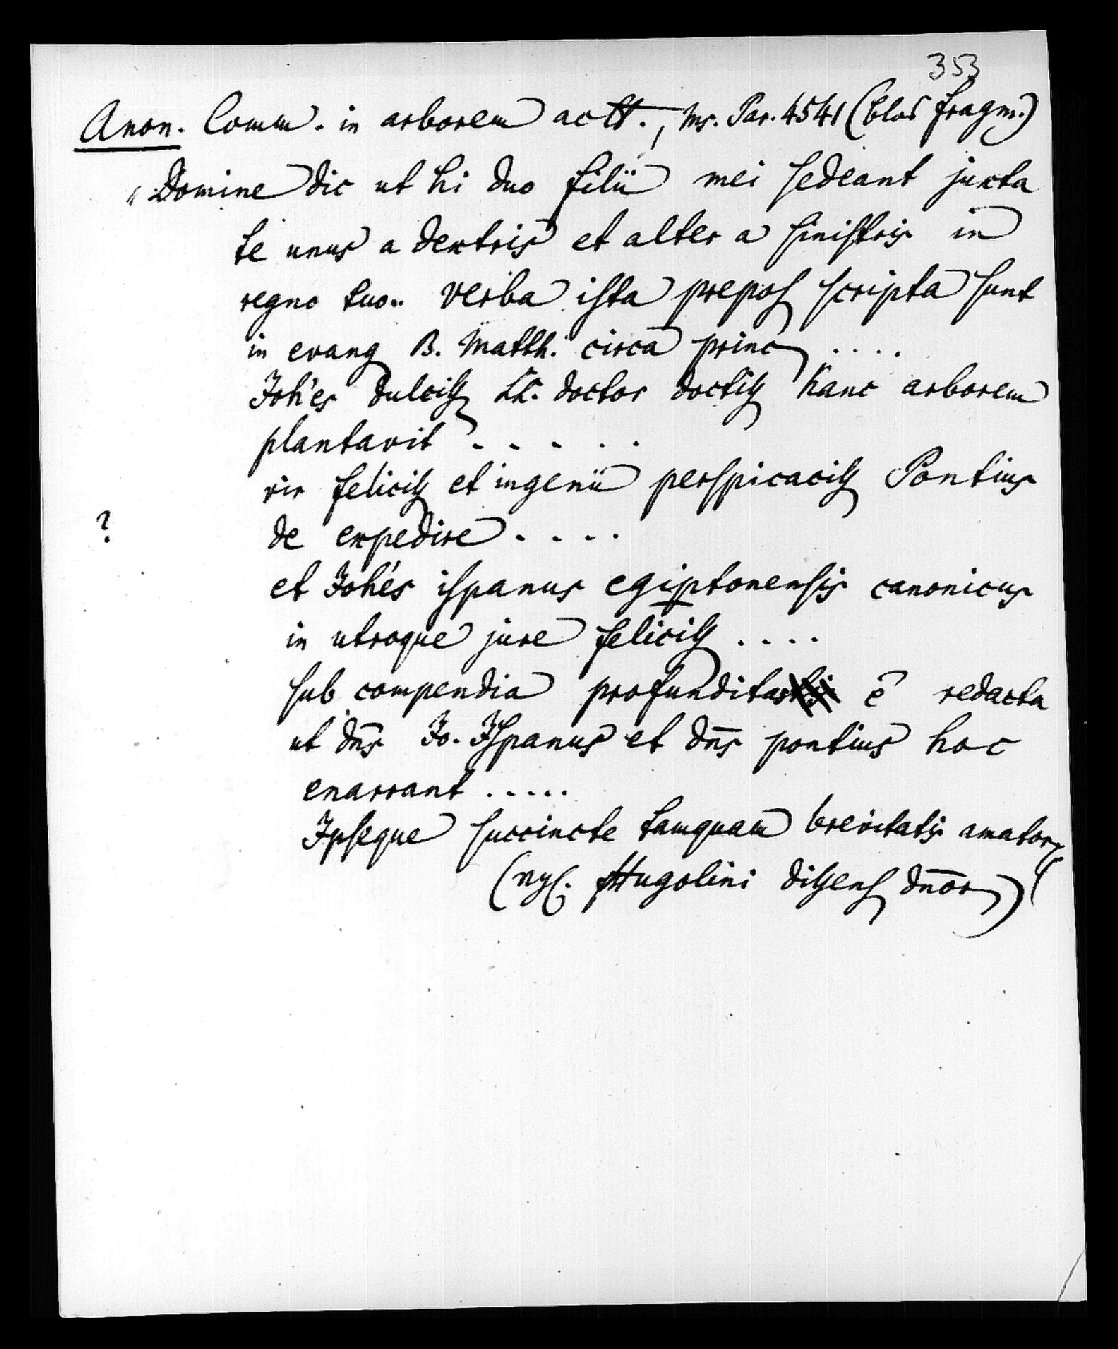 353
Anon. Comm. in arborem actt., Ms. Par. 4541 (blos fragm.)
„Domine dic ut hi duo filii mei sedeant juxta
te unus a dextris et alter a sinistris in
regno tuo„ verba ista prepos scripta sunt
in evang B. Matth. circa princ ....
Joh'es dulciss LL. doctor doctiss hanc arborem
plantavit .....
vir feliciss et ingenii perspicaciss Pontius
? de expedire ....
et Joh'es ispanus egiptonensis canonicus
in utroque jure feliciss ....
sub compendia profunditas ē redacta
ut dn̄s Jo. Ispanus et dn̄s pontius hoc
enarrant .....
Ipseque succincte tamquam brevitatis amator
( Hugolini dissens dn̄or)